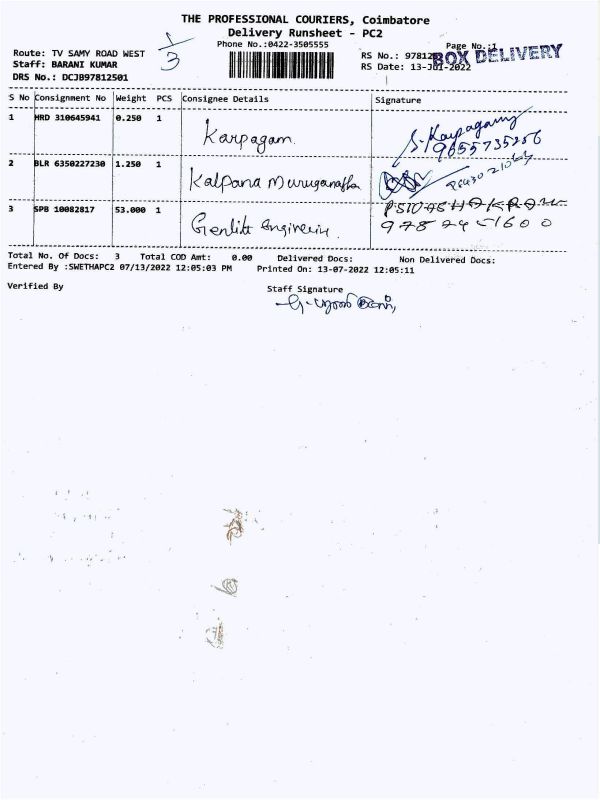 THE PROFESSIONAL COURIERS, Coimbatore
Delivery Runsheet - PC2
Phone No.:0422-3505555
Page No.:1
BOX DELIVERY
1/3
Route: TV SAMY ROAD WEST
RS No.: 9781251
Staff: BARANI KUMAR
RS Date: 13-Jul-2022
DRS No.: DCJB97812501
S No Consignment No Weight PCS Consignee Details Signature
1 HRD 310645941 0.250 1 Karpagam. S. Karpagamy
9655735256
2 BLR 6350227230 1.250 1 Kalpana Muruganatha
3 SPB 10082817 53.000 1 Genlitt Engineering.
Total No. Of Docs: 3 Total COD Amt: 0.00 Delivered Docs: Non Delivered Docs:
Entered By :SWETHAPC2 07/13/2022 12:05:03 PM Printed On: 13-07-2022 12:05:11
Verified By Staff Signature